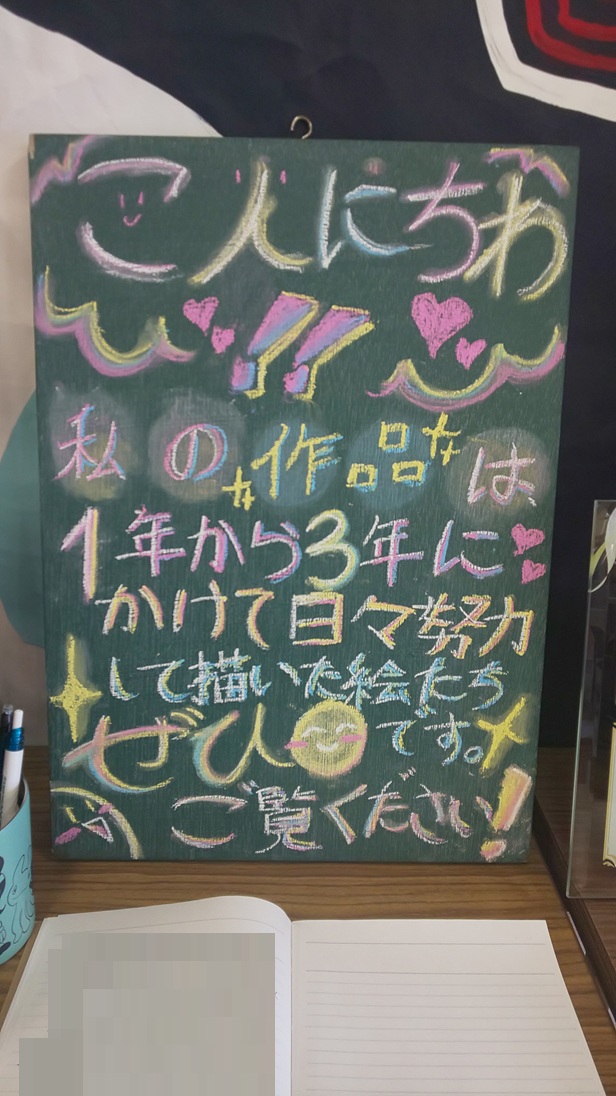 こんにちわ
!!
私の作品は
1年から3年に
かけて日々努力
して描いた絵たち
です。
ぜひ
ご覧ください!